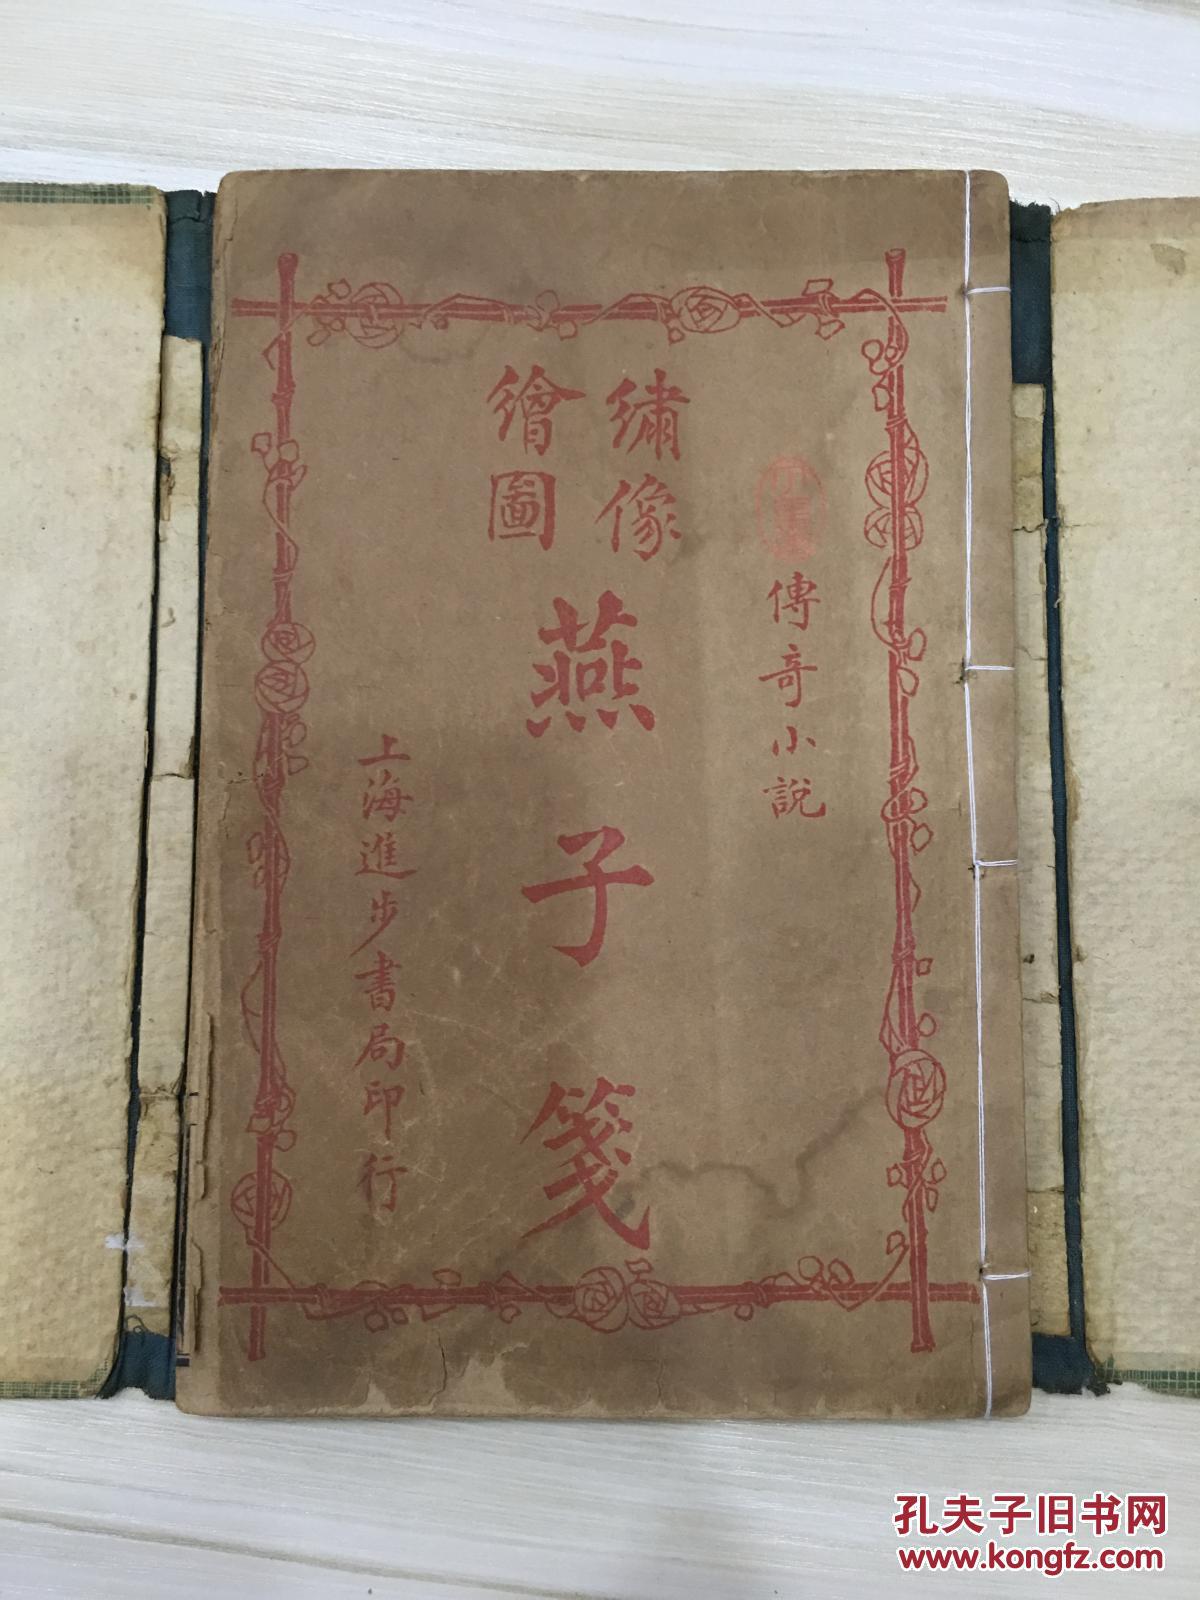 傳奇小說
繡像
繪圖
燕子箋
上海進步書局印行
孔夫子旧书网
www.kongfz.com